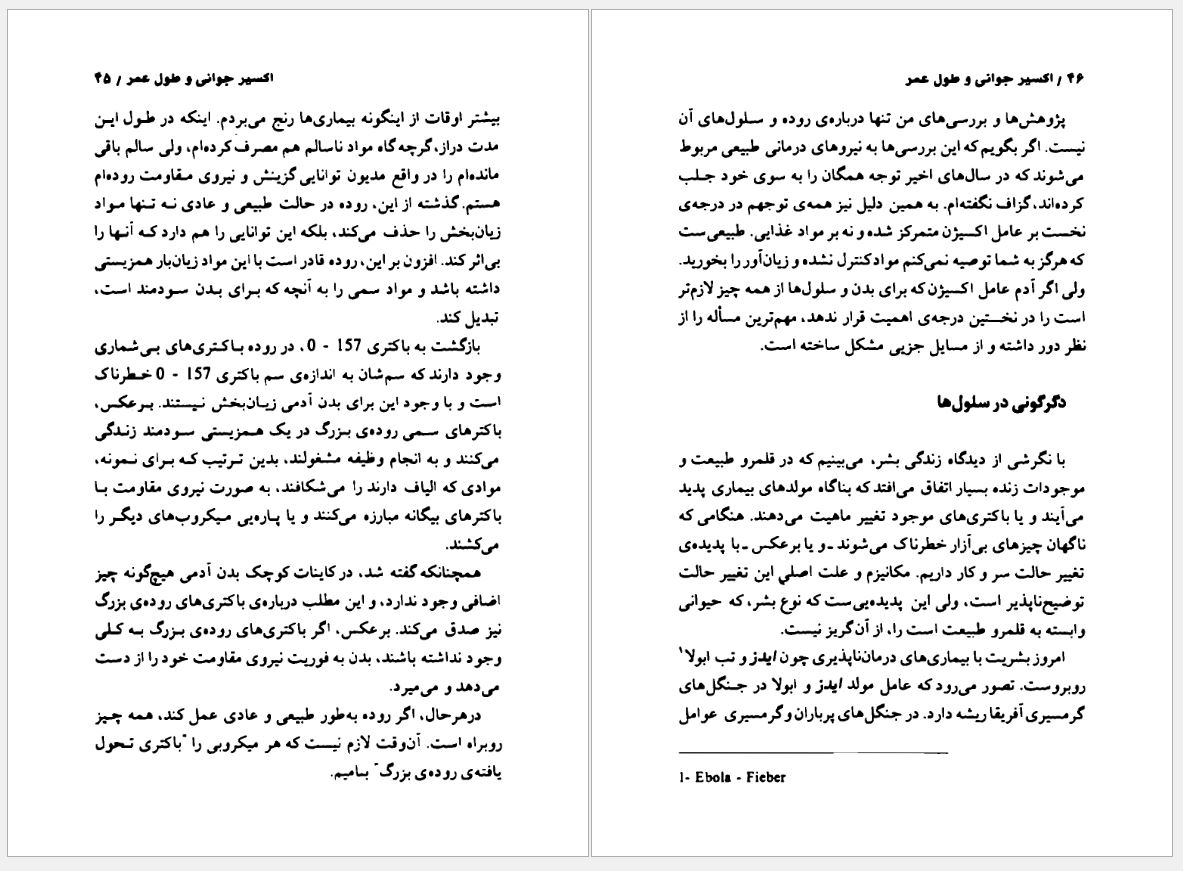 اکسیر جوانی و طول عمر / ۴۵
بیشتر اوقات از اینگونه بیماری‌ها رنج می‌بردم. اینکه در طول این
مدت دراز، گرچه گاه مواد ناسالم هم مصرف کرده‌ام، ولی سالم باقی
مانده‌ام را در واقع مدیون توانایی گزینش و نیروی مقاومت روده‌ام
هستم. گذشته از این، روده در حالت طبیعی و عادی نه تنها مواد
زیان‌بخش را حذف می‌کند، بلکه این توانایی را هم دارد که آنها را
بی‌اثر کند. افزون بر این، روده قادر است با این مواد زیان‌بار همزیستی
داشته باشد و مواد سمی را به آنچه که برای بدن سودمند است،
تبدیل کند.
بازگشت به باکتری 157 - 0، در روده باکتری‌های بی‌شماری
وجود دارند که سم‌شان به اندازه‌ی سم باکتری 157 - 0 خطرناک
است و با وجود این برای بدن آدمی زیان‌بخش نیستند. برعکس،
باکترهای سمی روده‌ی بزرگ در یک همزیستی سودمند زندگی
می‌کنند و به انجام وظیفه مشغولند، بدین ترتیب که برای نمونه،
موادی که الیاف دارند را می‌شکافند، به صورت نیروی مقاومت با
باکترهای بیگانه مبارزه می‌کنند و یا پاره‌یی میکروب‌های دیگر را
می‌کشند.
همچنانکه گفته شد، در کاینات کوچک بدن آدمی هیچ‌گونه چیز
اضافی وجود ندارد، و این مطلب درباره‌ی باکتری‌های روده‌ی بزرگ
نیز صدق می‌کند. برعکس، اگر باکتری‌های روده‌ی بزرگ به کلی
وجود نداشته باشند، بدن به فوریت نیروی مقاومت خود را از دست
می‌دهد و می‌میرد.
درهرحال، اگر روده به‌طور طبیعی و عادی عمل کند، همه چیز
روبراه است. آن‌وقت لازم نیست که هر میکروبی را "باکتری تحول
یافته‌ی روده‌ی بزرگ" بنامیم.
۴۶ / اکسیر جوانی و طول عمر
پژوهش‌ها و بررسی‌های من تنها درباره‌ی روده و سلول‌های آن
نیست. اگر بگویم که این بررسی‌ها به نیروهای درمانی طبیعی مربوط
می‌شوند که در سال‌های اخیر توجه همگان را به سوی خود جلب
کرده‌اند، گزاف نگفته‌ام. به همین دلیل نیز همه‌ی توجهم در درجه‌ی
نخست بر عامل اکسیژن متمرکز شده و نه بر مواد غذایی. طبیعی‌ست
که هرگز به شما توصیه نمی‌کنم مواد کنترل نشده و زیان‌آور را بخورید.
ولی اگر آدم عامل اکسیژن که برای بدن و سلول‌ها از همه چیز لازم‌تر
است را در نخستین درجه‌ی اهمیت قرار ندهد، مهم‌ترین مسأله را از
نظر دور داشته و از مسایل جزیی مشکل ساخته است.
دگرگونی در سلول‌ها
با نگرشی از دیدگاه زندگی بشر، می‌بینیم که در قلمرو طبیعت و
موجودات زنده بسیار اتفاق می‌افتد که بناگاه مولدهای بیماری پدید
می‌آیند و یا باکتری‌های موجود تغییر ماهیت می‌دهند. هنگامی که
ناگهان چیزهای بی‌آزار خطرناک می‌شوند ـ و یا برعکس ـ با پدیده‌ی
تغییر حالت سر و کار داریم. مکانیزم و علت اصلی این تغییر حالت
توضیح‌ناپذیر است، ولی این پدیده‌یی‌ست که نوع بشر، که حیوانی
وابسته به قلمرو طبیعت است را، از آن گریز نیست.
امروز بشریت با بیماری‌های درمان‌ناپذیری چون ایدز و تب ابولا۱
روبروست. تصور می‌رود که عامل مولد ایدز و ابولا در جنگل‌های
گرمسیری آفریقا ریشه دارد. در جنگل‌های پرباران و گرمسیری عوامل
1- Ebola - Fieber